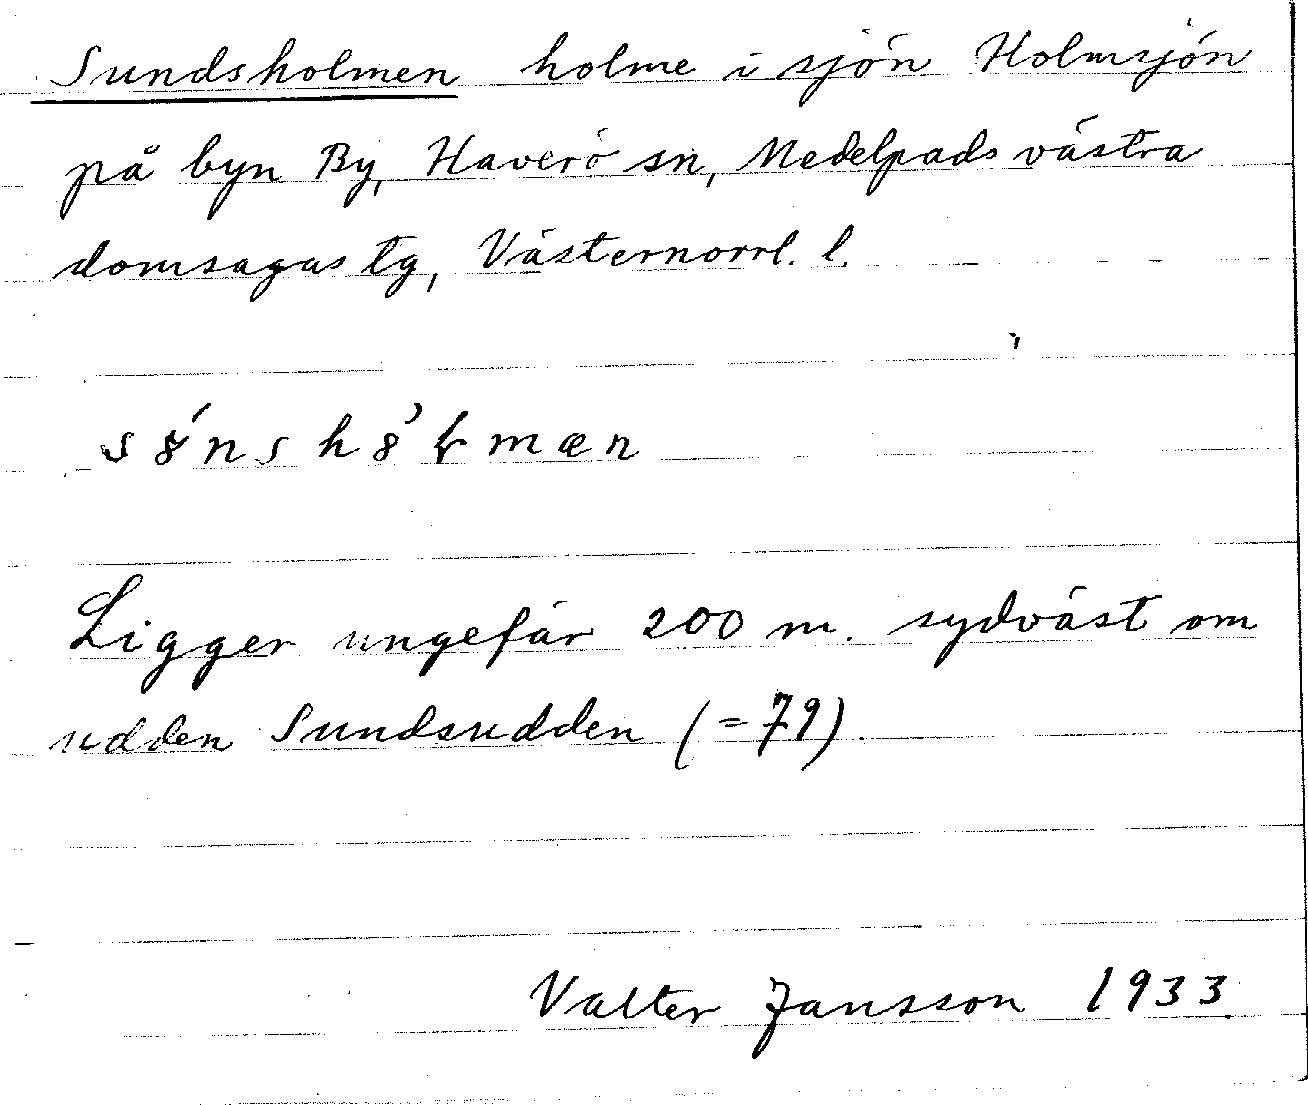 Sundsholmen holme i sjön Holmsjön
på byn By, Haverö sn, Medelpads västra
domsagas tg, Västernorrl. l.
Ligger ungefär 200 m. sydväst om
udden Sundsudden (=79).
Valter Jansson 1933